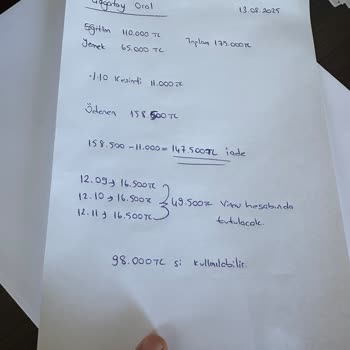 Çağatay Oral 13.08.2025
Eğitim 110.000 TL
Yemek 65.000 TL Toplam 175.000TL
%10 Kesinti 11.000 TL
Ödenen 158.500TL
158.500 - 11.000 = 147.500TL İade
12.09 → 16.500TL
12.10 → 16.500TL } 49.500TL Vinu hesabında
12.11 → 16.500TL tutulacak.
98.000TL si kullanılabilir.